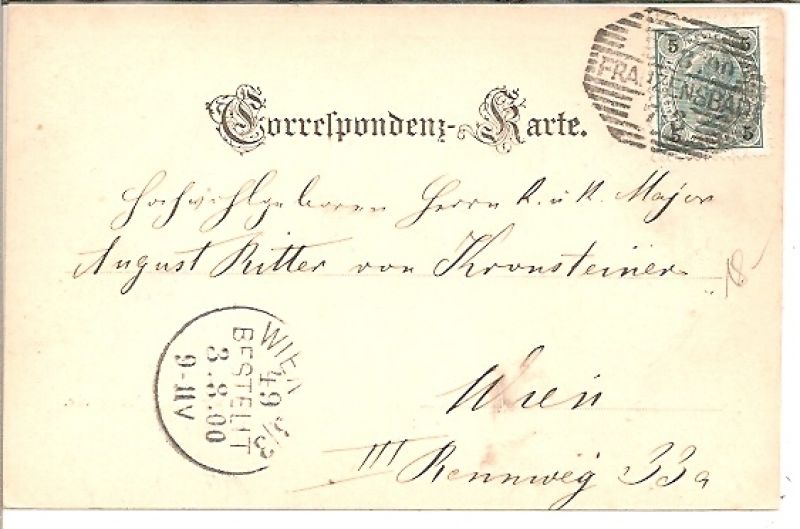 5 5
2 00
FRANZENSBAD
5 5
Correspondenz-Karte.
Hochwohlgeboren Herrn K. u. K. Major
August Ritter von Kronsteiner
18
Wien
III Rennweg 33a
WIEN 3/3
49
BESTELLT
3.8.00
9-11V